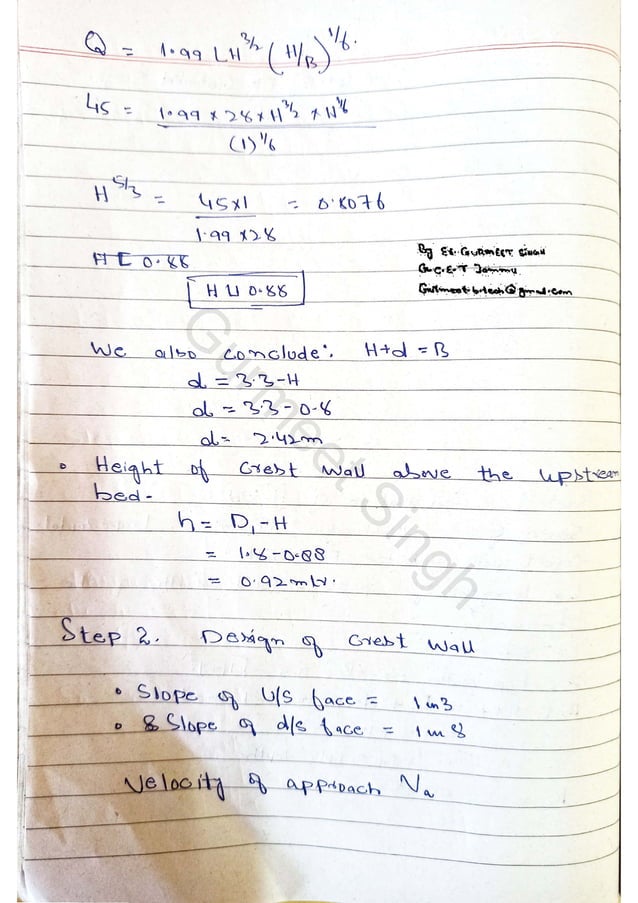 Q = 1.99 LH^3/2 (H/B)^1/6.
45 = 1.99 × 28 × H^3/2 × H^1/6
(1)^1/6
H^5/3 = 45×1 = 0.8076
1.99 × 28
H ⊑ 0.88
H ⊔ 0.88
By Er. GURMEET SINGH
G.C.E.T Jammu
Gurmeet.b.tech@gmail.com
We also conclude: H+d = B
d = 3.3-H
d = 3.3-0.8
d = 2.42m
• Height of Crest Wall above the upstream
bed-
h = D₁-H
= 1.8-0.88
= 0.92mtr.
Step 2. Design of Crest Wall
• Slope of U/S face = 1 in 3
• & Slope of d/s face = 1 in 8
Velocity of approach Va
Gurmeet Singh